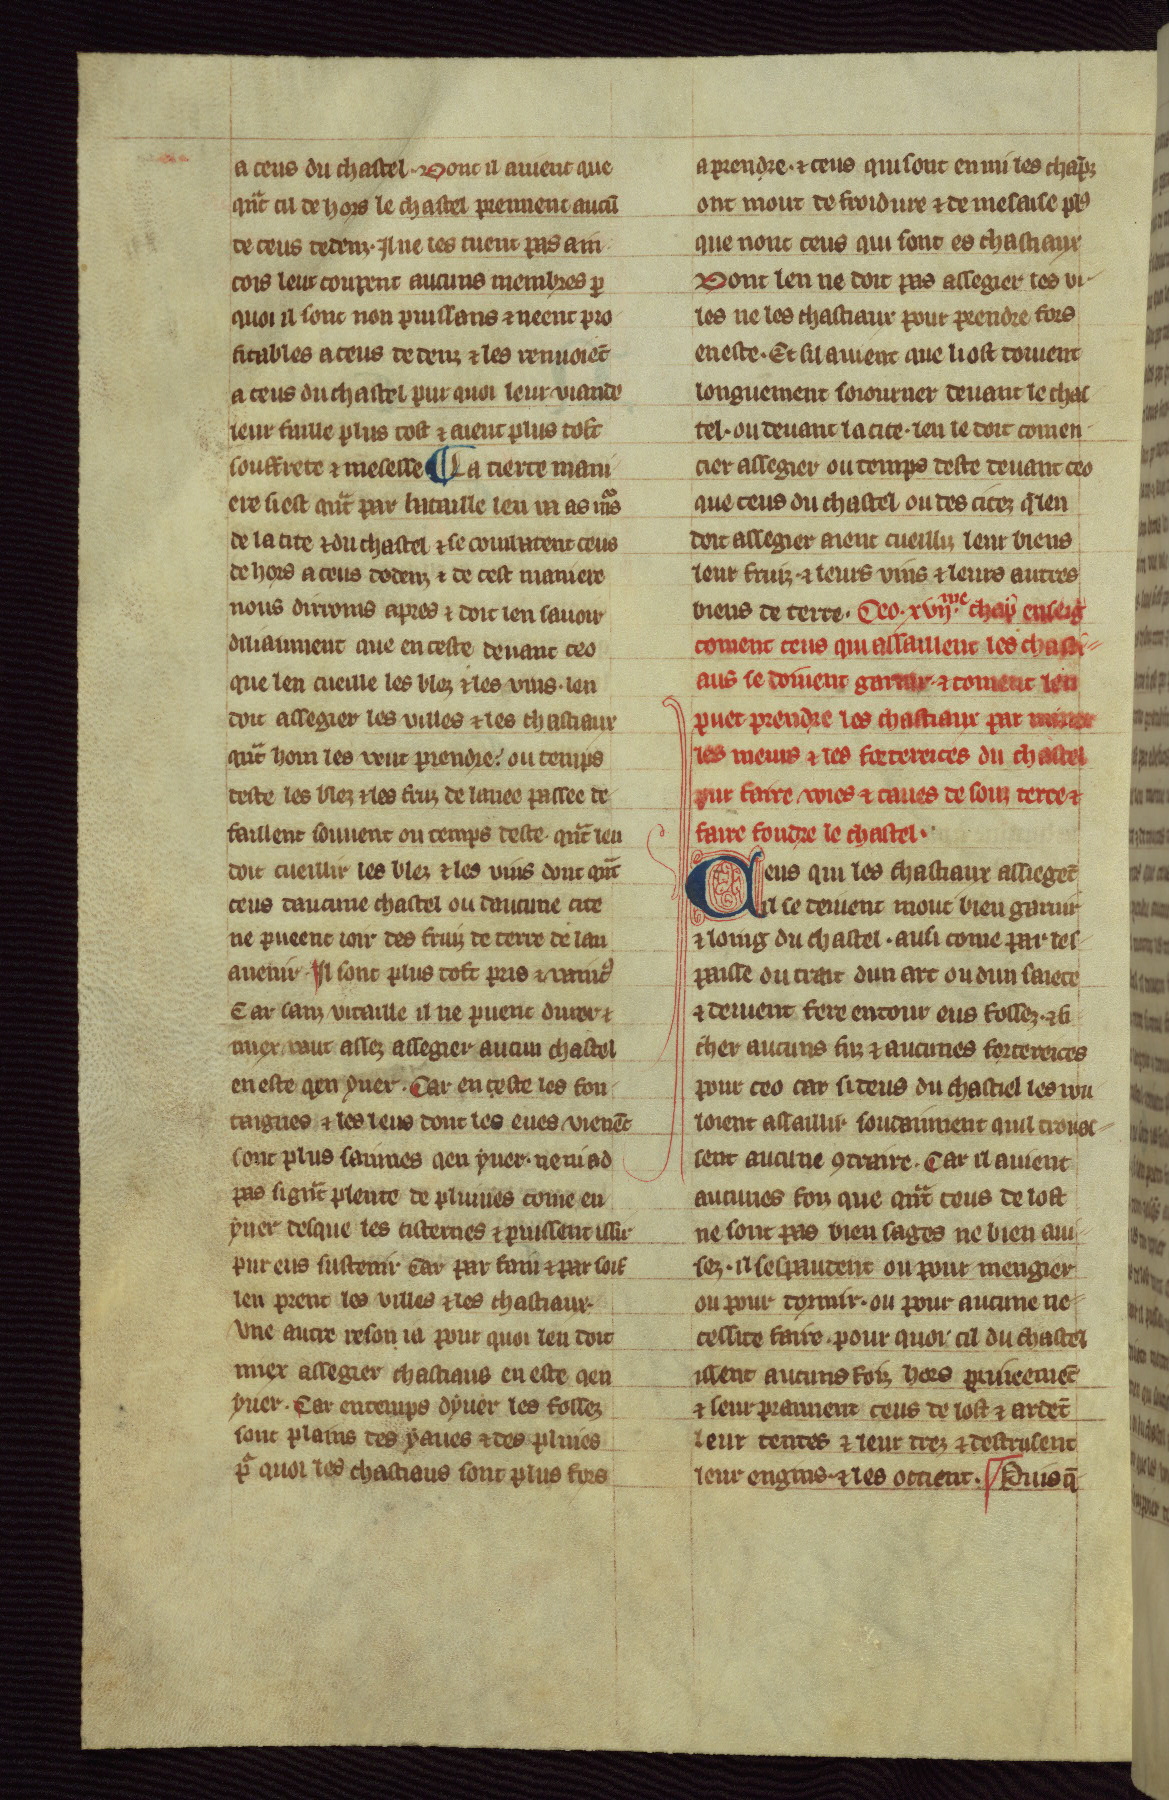 a ceus du chastel. Dont il auient que
qu̾t cil de hors le chastel prennent aucū
de ceus dedenz. Il ne les tuent pas ain
cois leur coupent aucuns membres p
quoi il sont non puissans ⁊ neent pro
fitables a ceus dedenz ⁊ les renuoiēt
a ceus du chastel pur quoi leur viande
leur faille plus tost ⁊ aient plus tost
souffrete ⁊ meselse La tierce mani
ere si est qu̾t par bataille len va as murs
de la cite ⁊ du chastel ⁊ se combatent ceus
de hors a ceus dedenz ⁊ de cest maniere
nous dirrons apres ⁊ doit len sauoir
diliaument que en ceste deuant ceo
que len cueille les blez ⁊ les vins. len
doit assegier les villes ⁊ les chastiaux
qu̾t hom les veut prendre. ou temps
deste les blez ⁊ les fruiz de lanee passee de
faillent souuent ou temps deste. qu̾t len
doit cueillir les blez ⁊ les vins dont qu̾t
ceus daucune chastel ou daucune cite
ne pueent ioir des fruiz de terre de lan
auenir. Il sont plus tost pris ⁊ vaincus
Car sanz vitaille il ne puent durer ⁊
miex vaut assez assegier aucun chastel
en este qen yuer. Car en ceste les fon
taignes ⁊ les leus dont les eues vienēt
sont plus saimes qen yuer. ne ni ad
pas si gn̾t plente de pluuies come en
yuer desque les cisternes ⁊ puissent issir
pur eus sustenir Car par faim ⁊ par soif
len prent les villes ⁊ les chastiaux.
Vne autre reson ia pour quoi len doit
miex assegier chastiaus en este qen
yuer. Car en temps dyuer les fossez
sont plains des yaues ⁊ des pluuies
p̾ quoi les chastiaus sont plus fors
a prendre. ⁊ ceus qui sont en mi les chāpz
ont mout de froidure ⁊ de mesaise pls
que nont ceus qui sont es chastiaux
Dont len ne doit pas assegier les vi
les ne les chastiaux pour prendre fors
en este. Et sil auient que li ost doiuent
longuement soiourner deuant le chas
tel. ou deuant la cite. len le doit comen
cier assegier ou temps deste deuant ceo
que ceus du chastel ou des citez q̄ len
doit assegier aient cueilliz leur biens
leur fruiz. ⁊ leurs vins ⁊ leurs autres
biens de terre. Ceo. xvij.me chap̄ enseig
coment ceus qui assaillent les chasti
aus se doiuent garnir ⁊ coment len
puet prendre les chastiaux par miner
les meurs ⁊ les forterences du chastel
pur faire voies ⁊ caues de souz terre ⁊
faire foudre le chastel.
Ceus qui les chastiaux assiegēt
il se deiuent mout bien garnir
⁊ loing du chastel. ausi come par les
paisse du trait dun arc ou dun saiete
⁊ deiuent fere entour eus fossez. ⁊ fi
cher aucuns fuz ⁊ aucunes forterences
pour ceo car si ceus du chastiel les vou
loient assaillir soudainment quil trouas
sent aucune ꝯtraire. Car il auient
aucunes foiz que qu̾t ceus de lost
ne sont pas bien sages ne bien aui
sez. il sespandent ou pour mengier
ou pour dormir. ou pour aucune ne
cessite faire. pour quoi cil du chastel
issent aucuns foiz hors priueemēt
⁊ seur prannent ceus de lost ⁊ ardēt
leur tentes ⁊ leur trez ⁊ destruisent
leur engins. ⁊ les occient. Puis q̄